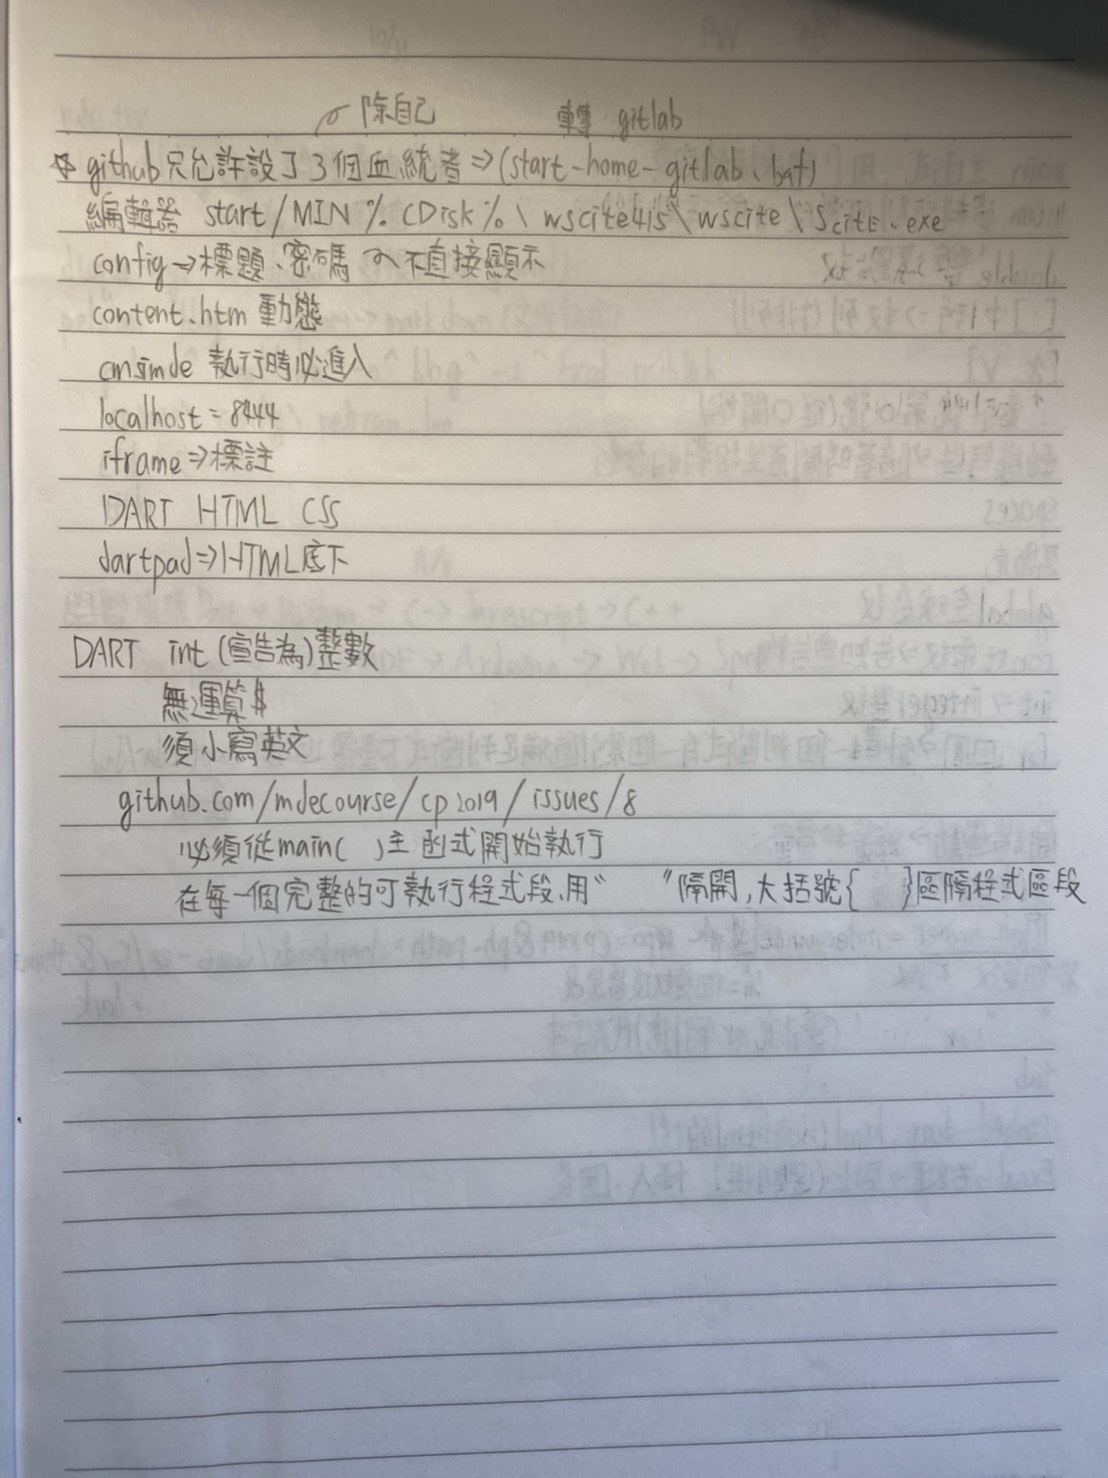 除自己 轉 gitlab
github只允許設了3個血統者⇒(start-home-gitlab.bat)
編輯器 start/MIN %CDisk%\wscite415\wscite\SciTE.exe
config→標題、密碼 不直接顯示
content.htm 動態
cmsimde 執行時必進入
localhost=8444
iframe⇒標註
DART HTML CSS
dartpad⇒HTML底下
DART int(宣告為)整數
無運算$
須小寫英文
github.com/mdecourse/cp2019/issues/8
必須從main( )主函式開始執行
在每一個完整的可執行程式段,用“ ”隔開,大括號{ }區隔程式區段